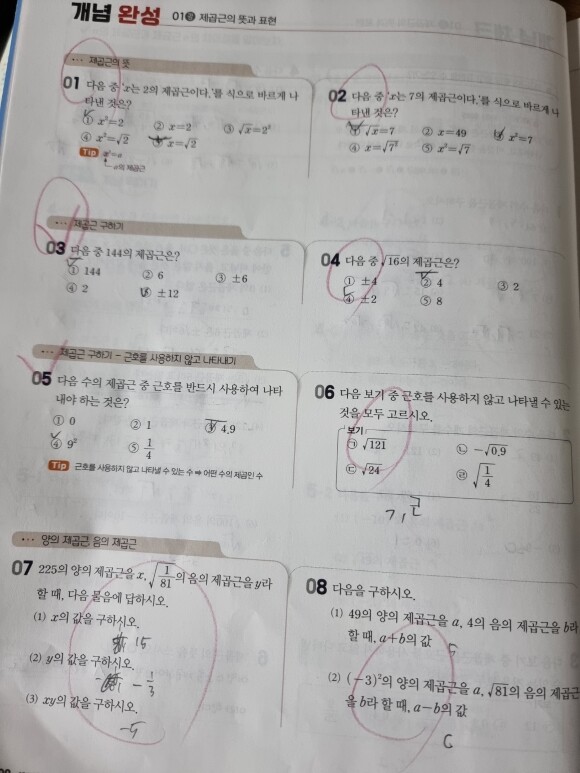 개념 완성 01강 제곱근의 뜻과 표현
제곱근의 뜻
01 다음 중 'x는 2의 제곱근이다.'를 식으로 바르게 나
타낸 것은?
① x²=2 ② x=2 ③ √x=2²
④ x²=√2 ⑤ x=√2
Tip x²=a
a의 제곱근
02 다음 중 'x는 7의 제곱근이다.'를 식으로 바르게 나
타낸 것은?
① √x=7 ② x=49 ③ x²=7
④ x=√7² ⑤ x²=√7
제곱근 구하기
03 다음 중 144의 제곱근은?
① 144 ② 6 ③ ±6
④ 2 ⑤ ±12
04 다음 중 √16의 제곱근은?
① ±4 ② 4 ③ 2
④ ±2 ⑤ 8
제곱근 구하기 - 근호를 사용하지 않고 나타내기
05 다음 수의 제곱근 중 근호를 반드시 사용하여 나타
내야 하는 것은?
① 0 ② 1 ③ 4.9
④ 9² ⑤ 1/4
Tip 근호를 사용하지 않고 나타낼 수 있는 수 ⇒ 어떤 수의 제곱인 수
06 다음 보기 중 근호를 사용하지 않고 나타낼 수 있는
것을 모두 고르시오.
보기
㉠ √121 ㉡ -√0.9
㉢ √24 ㉣ √1/4
ㄱ, ㄹ
양의 제곱근, 음의 제곱근
07 225의 양의 제곱근을 x, √1/81의 음의 제곱근을 y라
할 때, 다음 물음에 답하시오.
(1) x의 값을 구하시오.
15
(2) y의 값을 구하시오.
-1/3
(3) xy의 값을 구하시오.
-5
08 다음을 구하시오.
(1) 49의 양의 제곱근을 a, 4의 음의 제곱근을 b라
할 때, a+b의 값
5
(2) (-3)²의 양의 제곱근을 a, √81의 음의 제곱근
을 b라 할 때, a-b의 값
6